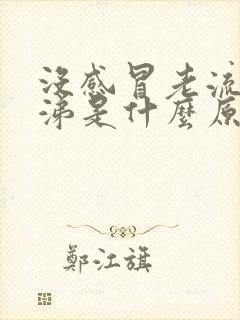 沒感冒老流
涕是什麼原
鄭江旗